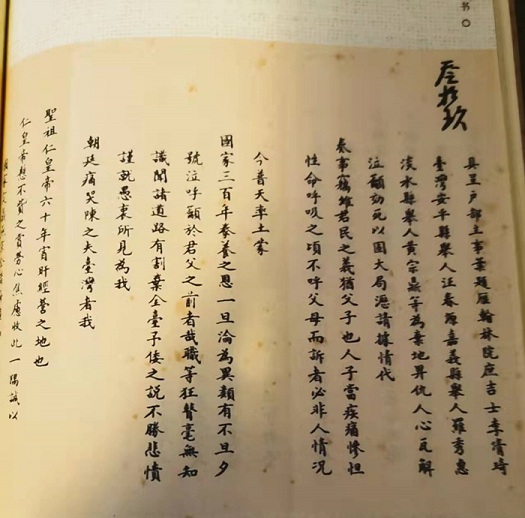 书
叁拾玖
具呈戶部主事葉題雁翰林院庶吉士李清琦
臺灣安平縣舉人汪春源嘉義縣舉人羅秀惠
淡水縣舉人黃宗鼎等為棄地畀仇人心瓦解
泣籲効死以固大局請據情代
奏事竊維君民之義猶父子也人子當疾痛慘怛
性命呼吸之頃不呼父母而訴者必非人情況
今普天率土蒙
國家三百年豢養之恩一旦淪為異類有不旦夕
號泣呼籲於君父之前者哉職等狂瞽毫無知
識聞諸道路有割棄全臺予倭之說不勝悲憤
謹就愚衷所見為我
朝廷痛哭陳之夫臺灣者我
聖祖仁皇帝六十年宵旰經營之地也
仁皇帝懸不貲之賞勞心焦慮收此一隅誠以